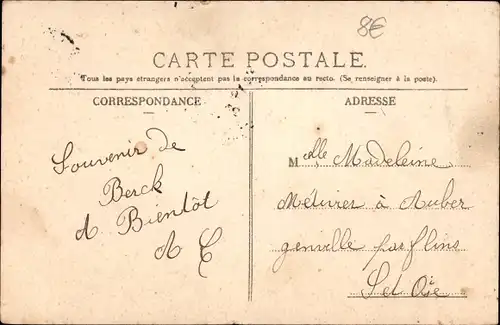 8€
CARTE POSTALE.
Tous les pays étrangers n'acceptent pas la correspondance au recto. (Se renseigner à la poste).
CORRESPONDANCE
ADRESSE
Souvenir de
Berck
A Bientôt
A C
Melle Madeleine
Métivier à Auber
genville par flins
Set Oie